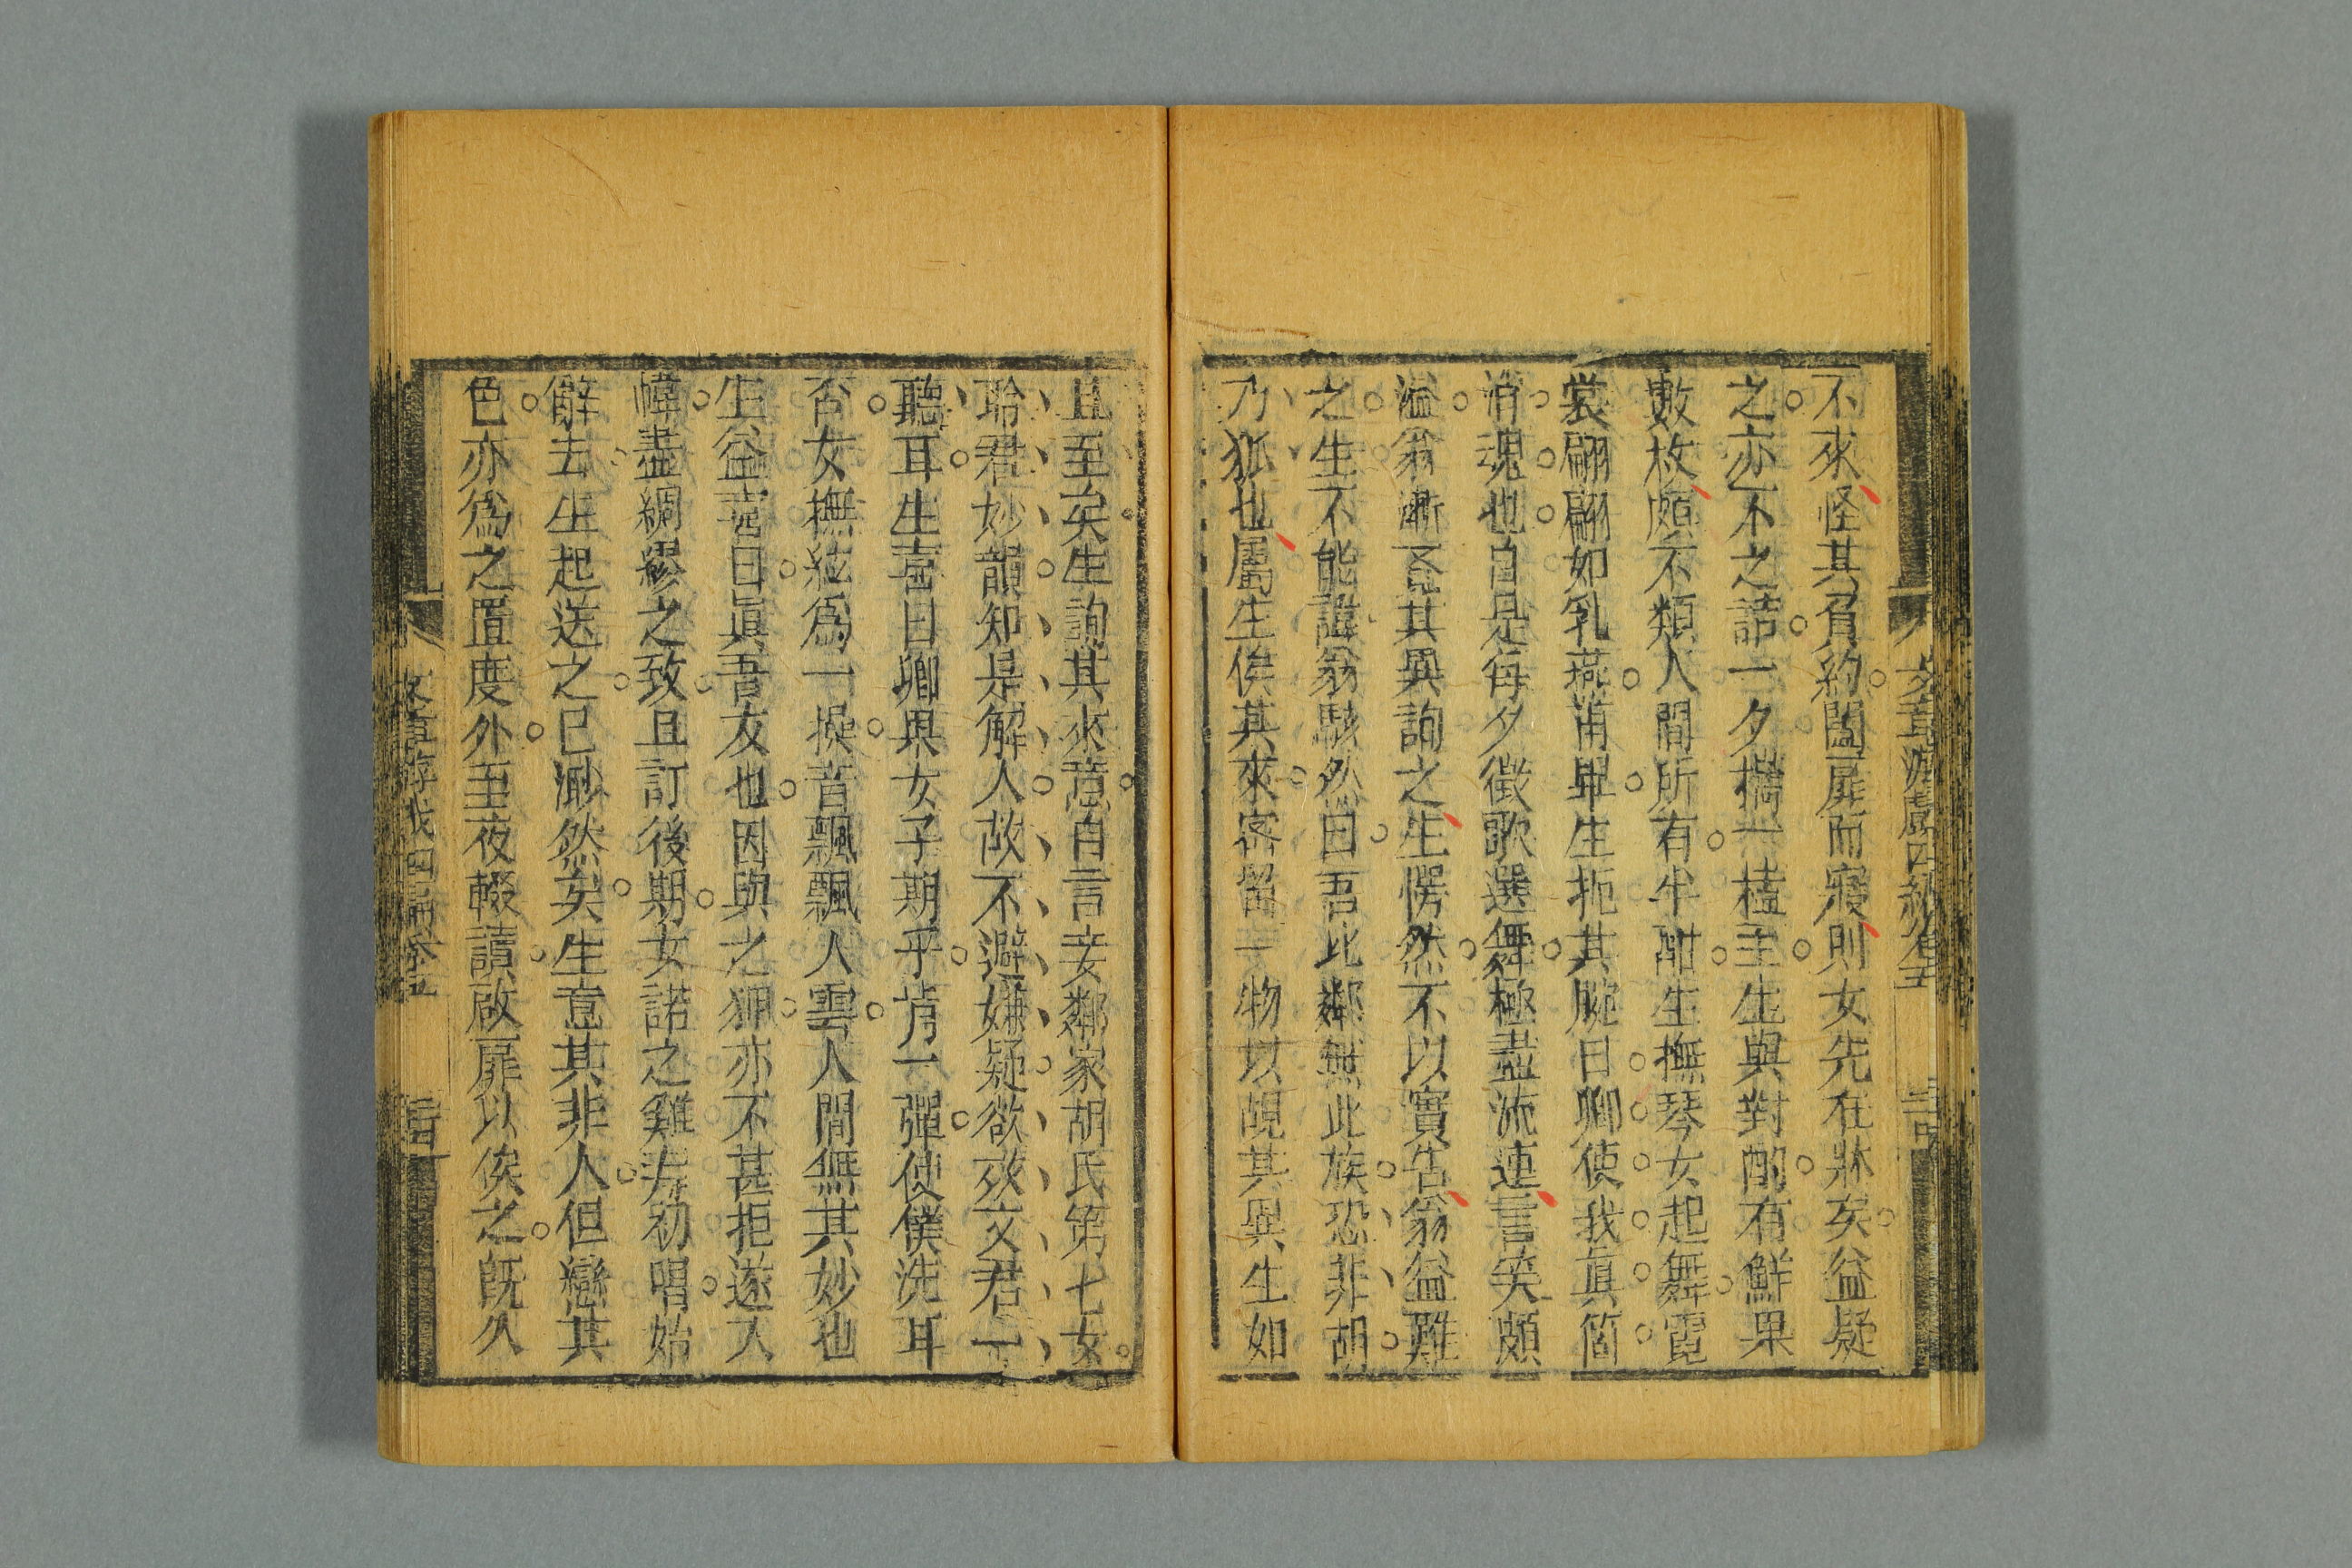 文章游戲四編卷五
不來怪其負約闔扉而寢則女先在牀矣益疑
之亦不之詰一夕攜一榼至生與對酌有鮮果
數枚頗不類人間所有半酣生撫琴女起舞霓
裳翩翩如乳燕甫畢生扼其腕曰卿使我眞箇
消魂也自是每夕徵歌選舞極盡流連言笑頗
溢翁漸其異詢之生愕然不以實告翁益難
之生不能諱翁駭然曰吾比鄰無此族恐非胡
乃狐也屬生俟其來密留一物以覘其異生如
且至矣生詢其來意自言妾鄰家胡氏第七女
聆君妙韻知是解人故不避嫌疑欲效文君一
聽耳生喜曰卿果女子期乎肯一彈使僕洗耳
否女撫絃爲一操音飄飄人雲人間無其妙也
生益喜曰眞吾友也因與之狎亦不甚拒遂入
幃盡綢繆之致且訂後期女諾之雞聲初唱始
辭去生起送之已渺然矣生意其非人但戀其
色亦爲之置度外至夜輟讀啟扉以俟之旣久
文章游戲四編卷五